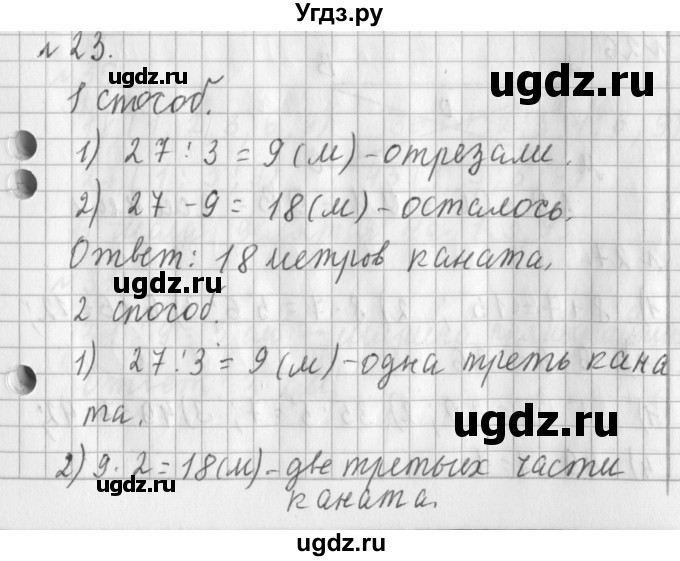 Угдз.ру
№ 23.
ugdz.ru
ugdz.ru
1 способ.
1) 27 : 3 = 9 (м) - отрезали.
ugdz.ru
2) 27 - 9 = 18 (м) - осталось.
Ответ: 18 метров каната.
ugdz.ru
2 способ.
1) 27 : 3 = 9 (м) - одна треть кана
та.
ugdz.ru
2) 9 · 2 = 18 (м) - две третьих части
ugdz.ru
каната.
ugdz.ru